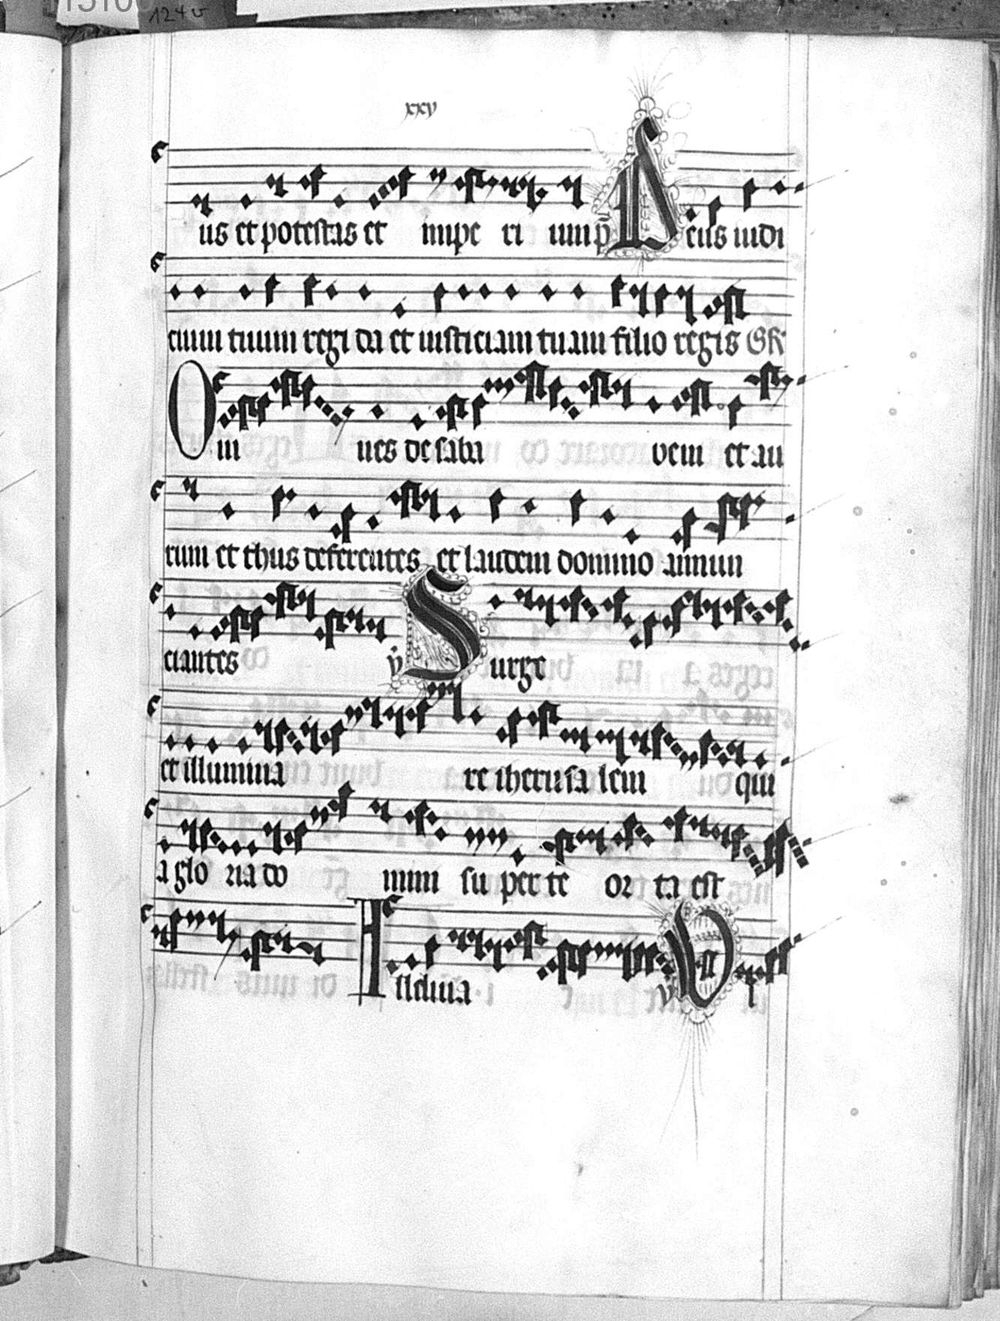 124v
xxv
us et potestas et impe ri um p̄s Deus iudi
cium tuum regi da et iusticiam tuam filio regis GR
Om nes de saba venient et au
rum et thus deferentes et laudem domino annun
ciantes v̄ Surge
et illumina re iherusalem qui
a glo ria do mini su per te or ta est
Alleluia v̄ V